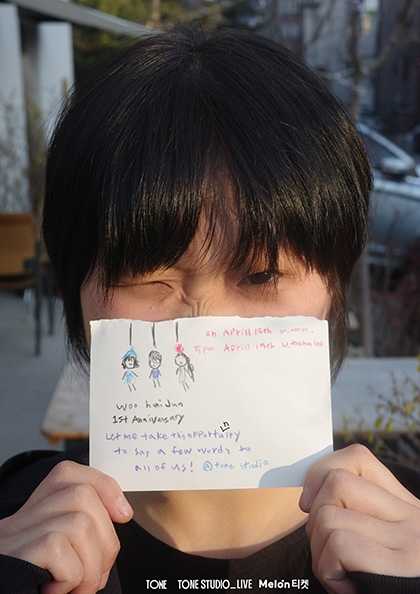 April 18th
April 19th
woo
1st Anniversary
Let me take this opportunity
to say a few words to
all of us! @tone studio
TONE TONE STUDIO_LIVE Melon티켓